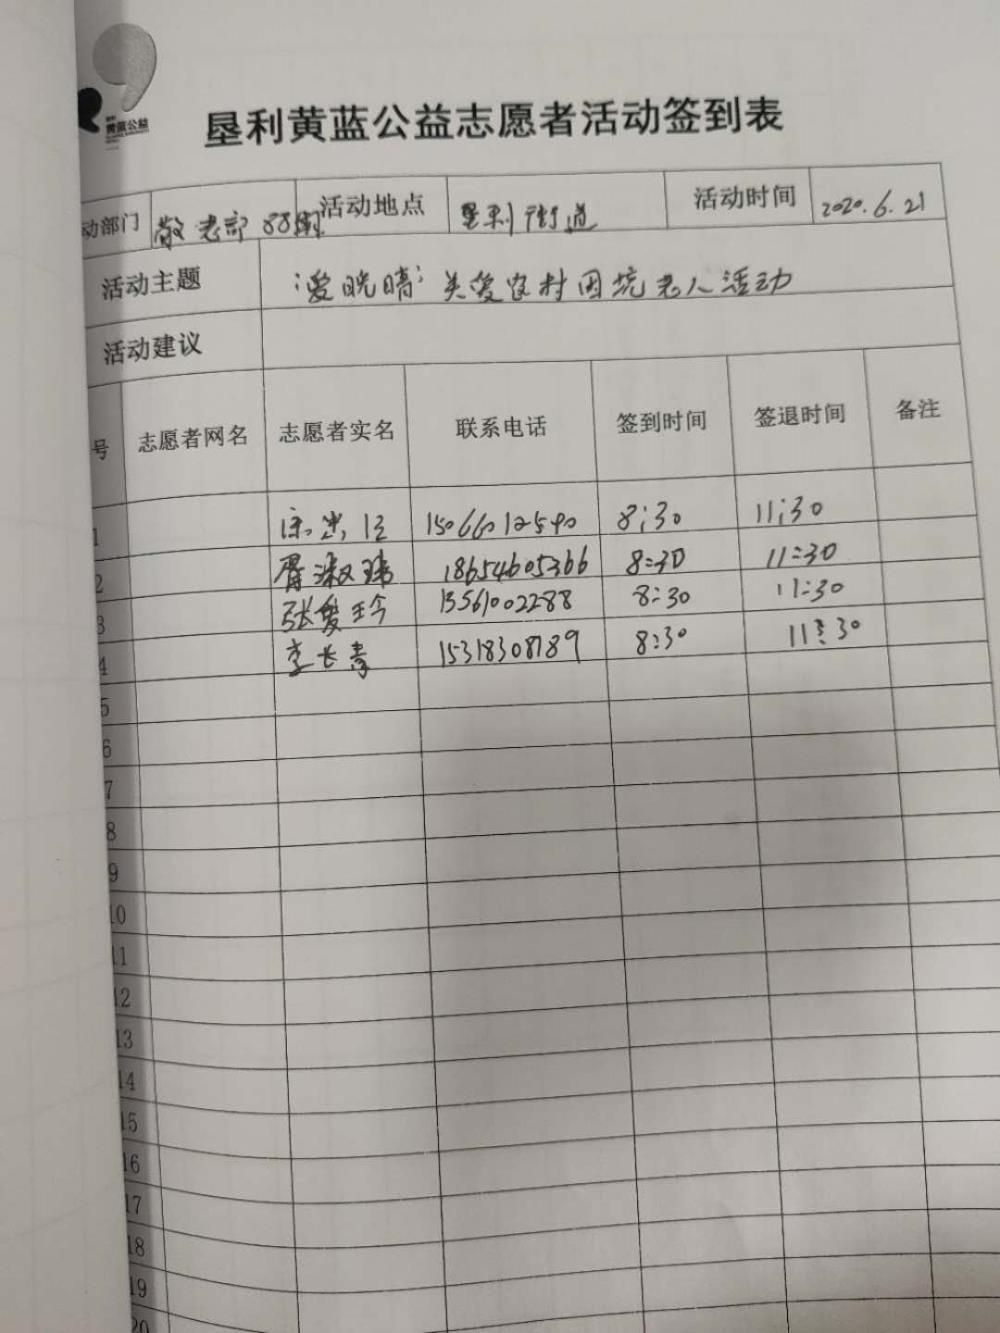 黄蓝公益
垦利黄蓝公益志愿者活动签到表
动部门 敬老部 活动地点 垦利街道 活动时间 2020.6.21
活动主题 “爱晚晴”关爱农村困境老人活动
活动建议
号 志愿者网名 志愿者实名 联系电话 签到时间 签退时间 备注
1 15066012590 8:30 11:30
2 18654605366 8:30 11:30
3 张爱玲 13561002288 8:30 11:30
4 李长青 15318308789 8:30 11:30
5
6
7
8
9
10
11
12
13
14
15
16
17
18
19
20